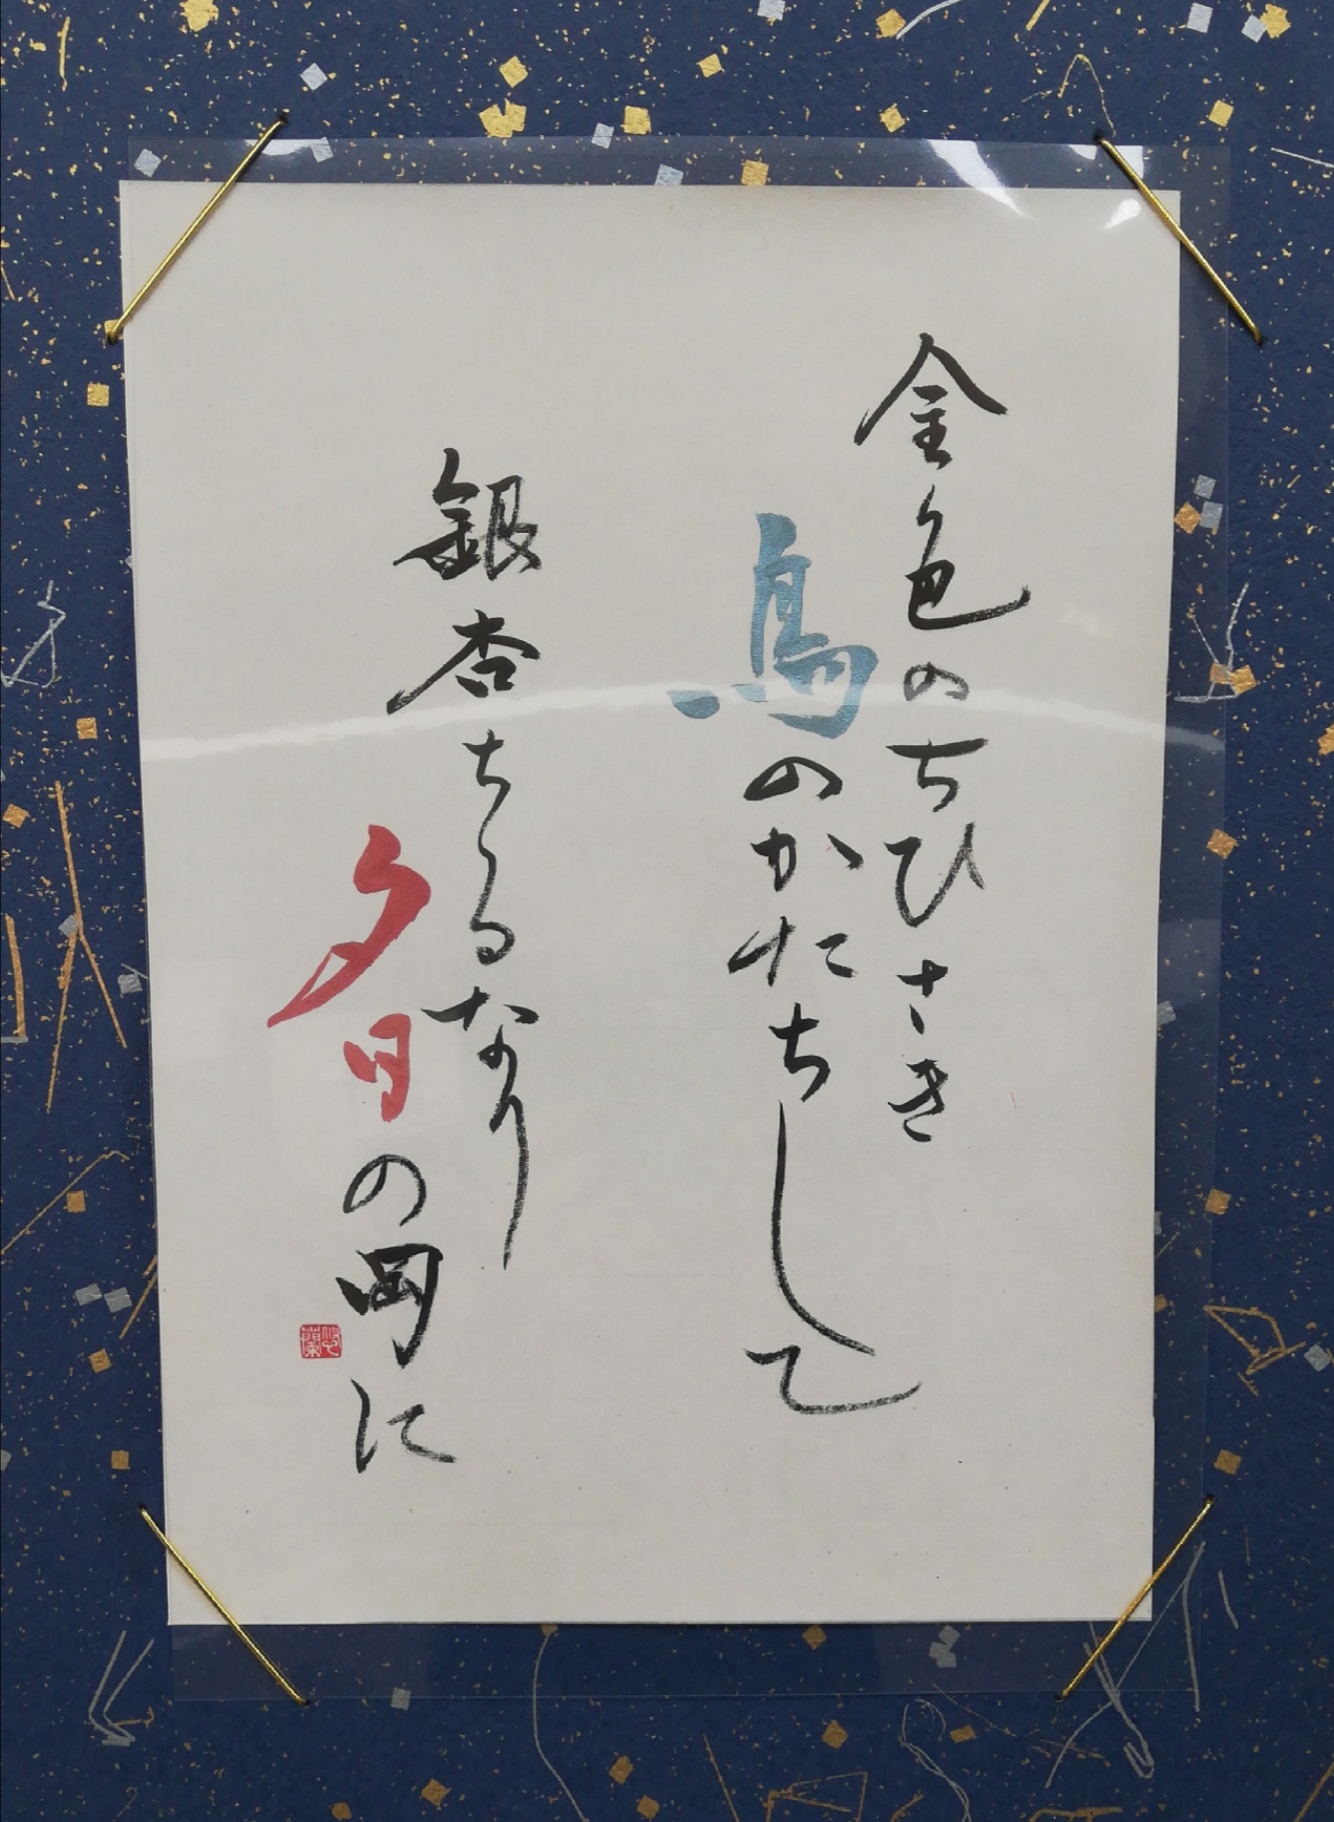 金色のちひさき
鳥のかたちして
銀杏ちるなり
夕日の岡に